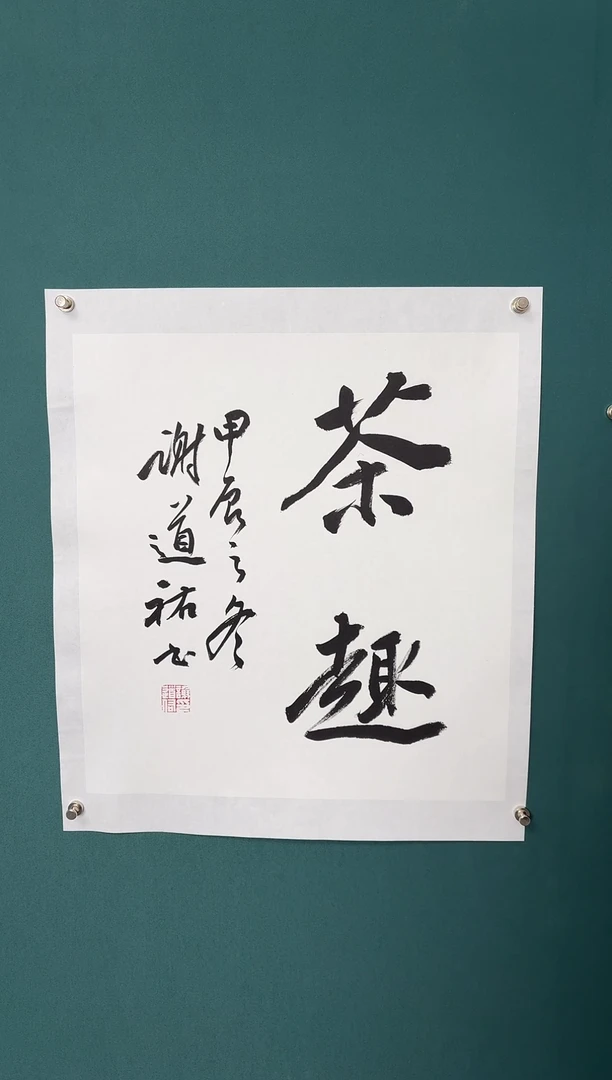 茶趣
甲辰之冬
谢道祐书